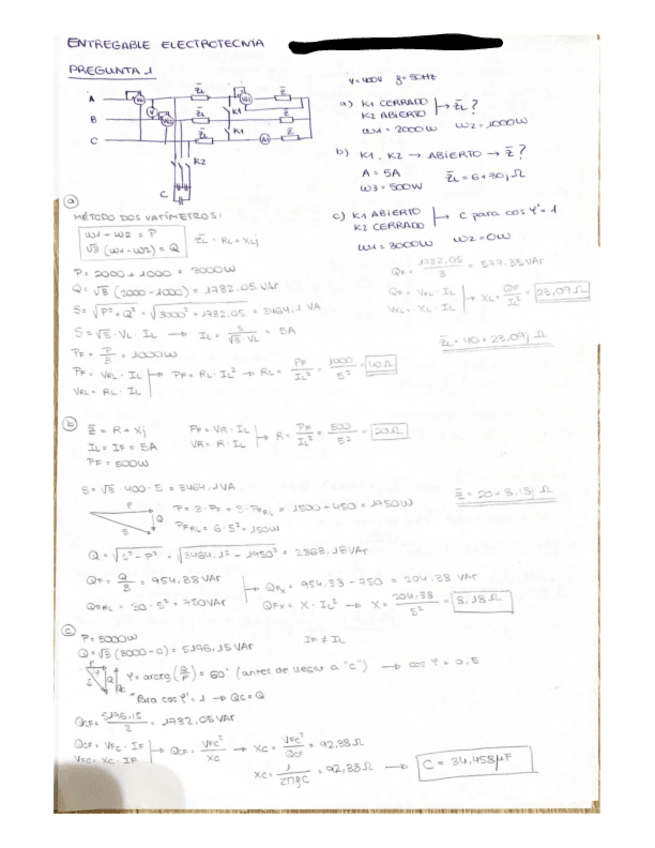 ENTREGABLE ELECTROTECNIA
PREGUNTA 1
V=400V f=50Hz
A
B
C
Z̄L
Z̄L
Z̄L
Z̄
Z̄
Z̄
K1
K1
K2
C
a) K1 CERRADO
K2 ABIERTO → Z̄L?
W1 = 2000W W2 = 1000W
b) K1, K2 → ABIERTO → Z̄?
A = 5A
W3 = 500W Z̄L = 6+30j Ω
c) K1 ABIERTO
K2 CERRADO → C para cos φ' = 1
W1 = 3000W W2 = 0W
a
MÉTODO DOS VATÍMETROS:
W1 + W2 = P
√3 (W1-W2) = Q
Z̄L = RL + XLj
P = 2000 + 1000 = 3000W
Q = √3 (2000-1000) = 1732,05 VAr
S = √P²+Q² = √3000²+1732,05 = 3464,1 VA
S = √3 · VL · IL → IL = S/√3·VL = 5A
PF = P/3 = 1000W
PF = VRL · IL
VRL = RL · IL → PF = RL · IL² → RL = PF/IL² = 1000/5² = 40Ω
QF = 1732,05/3 = 577,35 VAr
QF = VXL · IL
VXL = XL · IL → XL = QF/IL² = 23,09Ω
Z̄L = 40 + 23,09j Ω
b
Z̄ = R + Xj
IL = IF = 5A
PF = 500W
PF = VR · IL
VR = R · IL → R = PF/IL² = 500/5² = 20Ω
S = √3 · 400 · 5 = 3464,1 VA
P
Q
S
P = 3·PF + 3·PFRL = 1500 + 450 = 1950W
PFRL = 6·5² = 150W
Z̄ = 20 + 8,18j Ω
Q = √S²-P² = √3464,1²-1950² = 2863,15 VAr
QF = Q/3 = 954,38 VAr
QFRL = 30·5² = 750VAr
QFX = 954,38 - 750 = 204,38 VAr
QFX = X · IL² → X = 204,38/5² = 8,18Ω
c
P = 3000W
Q = √3 (3000-0) = 5196,15 VAr
IF ≠ IL
φ = arctg (Q/P) = 60° (antes de llegar a "C") → cos φ = 0,5
*Para cos φ' = 1 → QC = Q
QCF = 5196,15/3 = 1732,05 VAr
QCF = VFC · IF
VFC = XC · IF → QCF = VFC²/XC → XC = VFC²/QCF = 92,38Ω
XC = 1/2πfC = 92,38Ω → C = 34,458μF